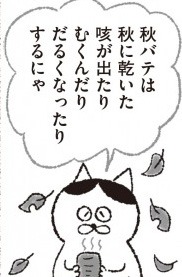 秋バテは
秋に乾いた
咳が出たり
むくんだり
だるくなったり
するにゃ